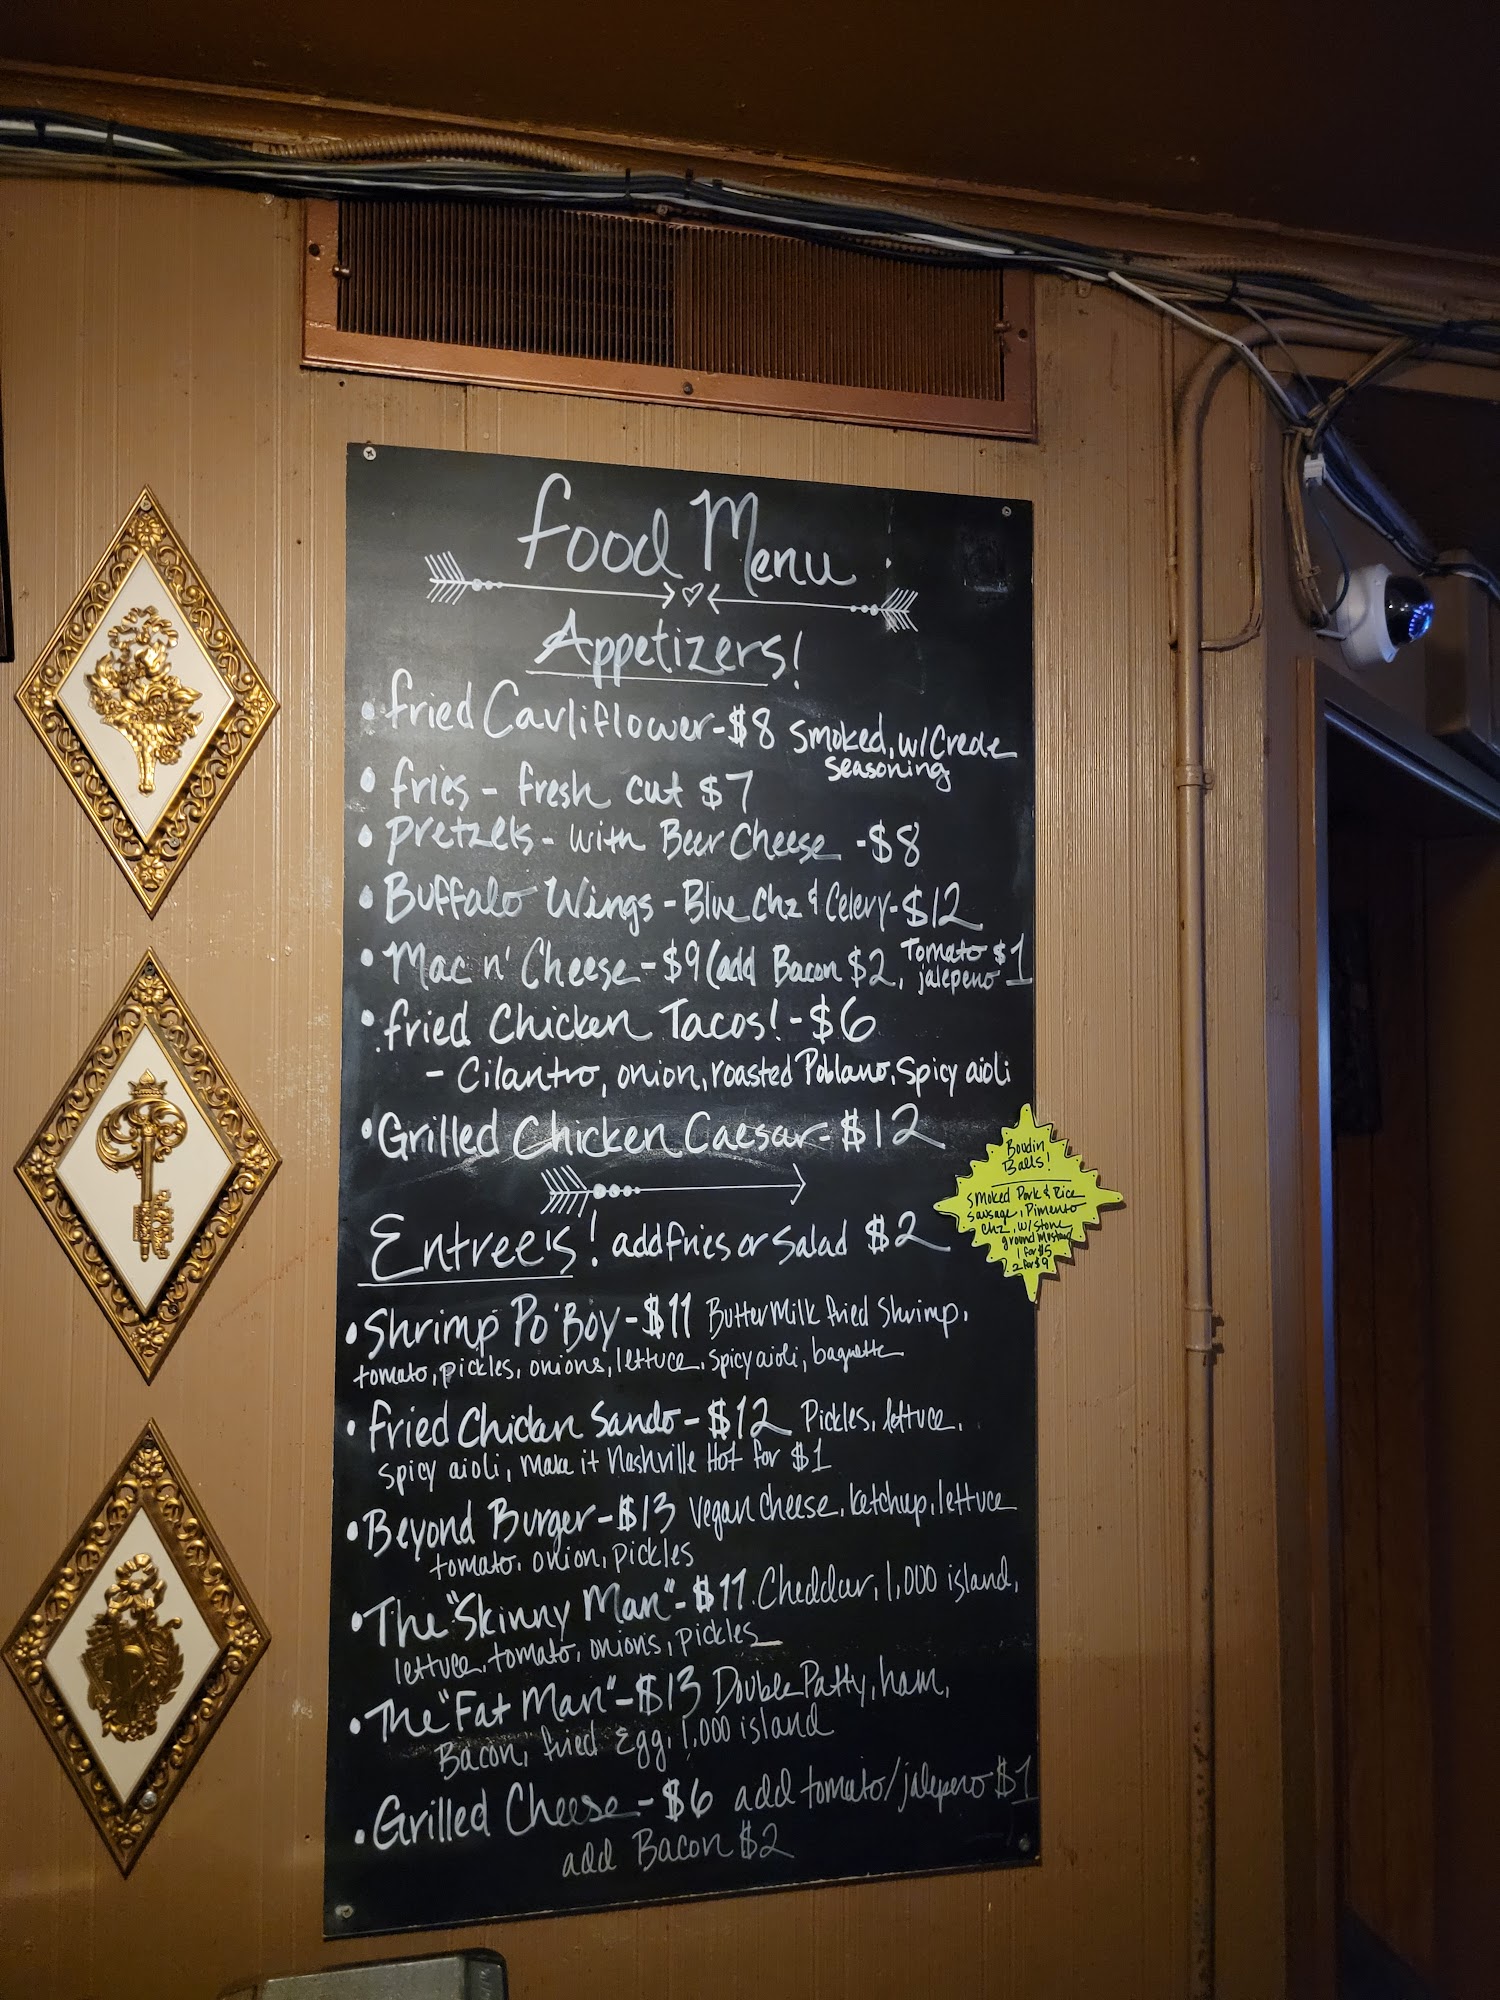 Food Menu
Appetizers!
• Fried Cauliflower - $8 Smoked, w/ Creole
Seasoning
• Fries - Fresh cut $7
• Pretzels - with Beer Cheese - $8
• Buffalo Wings - Blue Chz & Celery - $12
• Mac n' Cheese - $9 (add Bacon $2, Tomato $1
jalepeno
• Fried Chicken Tacos! - $6
- Cilantro, onion, roasted Poblano, Spicy aioli
• Grilled Chicken Caesar - $12
Boudin
Balls!
Smoked Pork & Rice
sausage, Pimento
chz, w/ stone
ground Mustard
1 for $5
2 for $9
Entree's! add fries or Salad $2
• Shrimp Po'Boy - $11 ButterMilk fried Shrimp,
tomato, pickles, onions, lettuce, spicy aioli, baguette
• Fried Chicken Sando - $12 Pickles, lettuce,
spicy aioli, Make it Nashville Hot for $1
• Beyond Burger - $13 vegan cheese, ketchup, lettuce
tomato, onion, pickles
• The "Skinny Man" - $11 Cheddar, 1,000 island,
lettuce, tomato, onions, pickles
• The "Fat Man" - $13 Double Patty, ham,
Bacon, fried Egg, 1,000 island
• Grilled Cheese - $6 add tomato/jalepeno $1
add Bacon $2